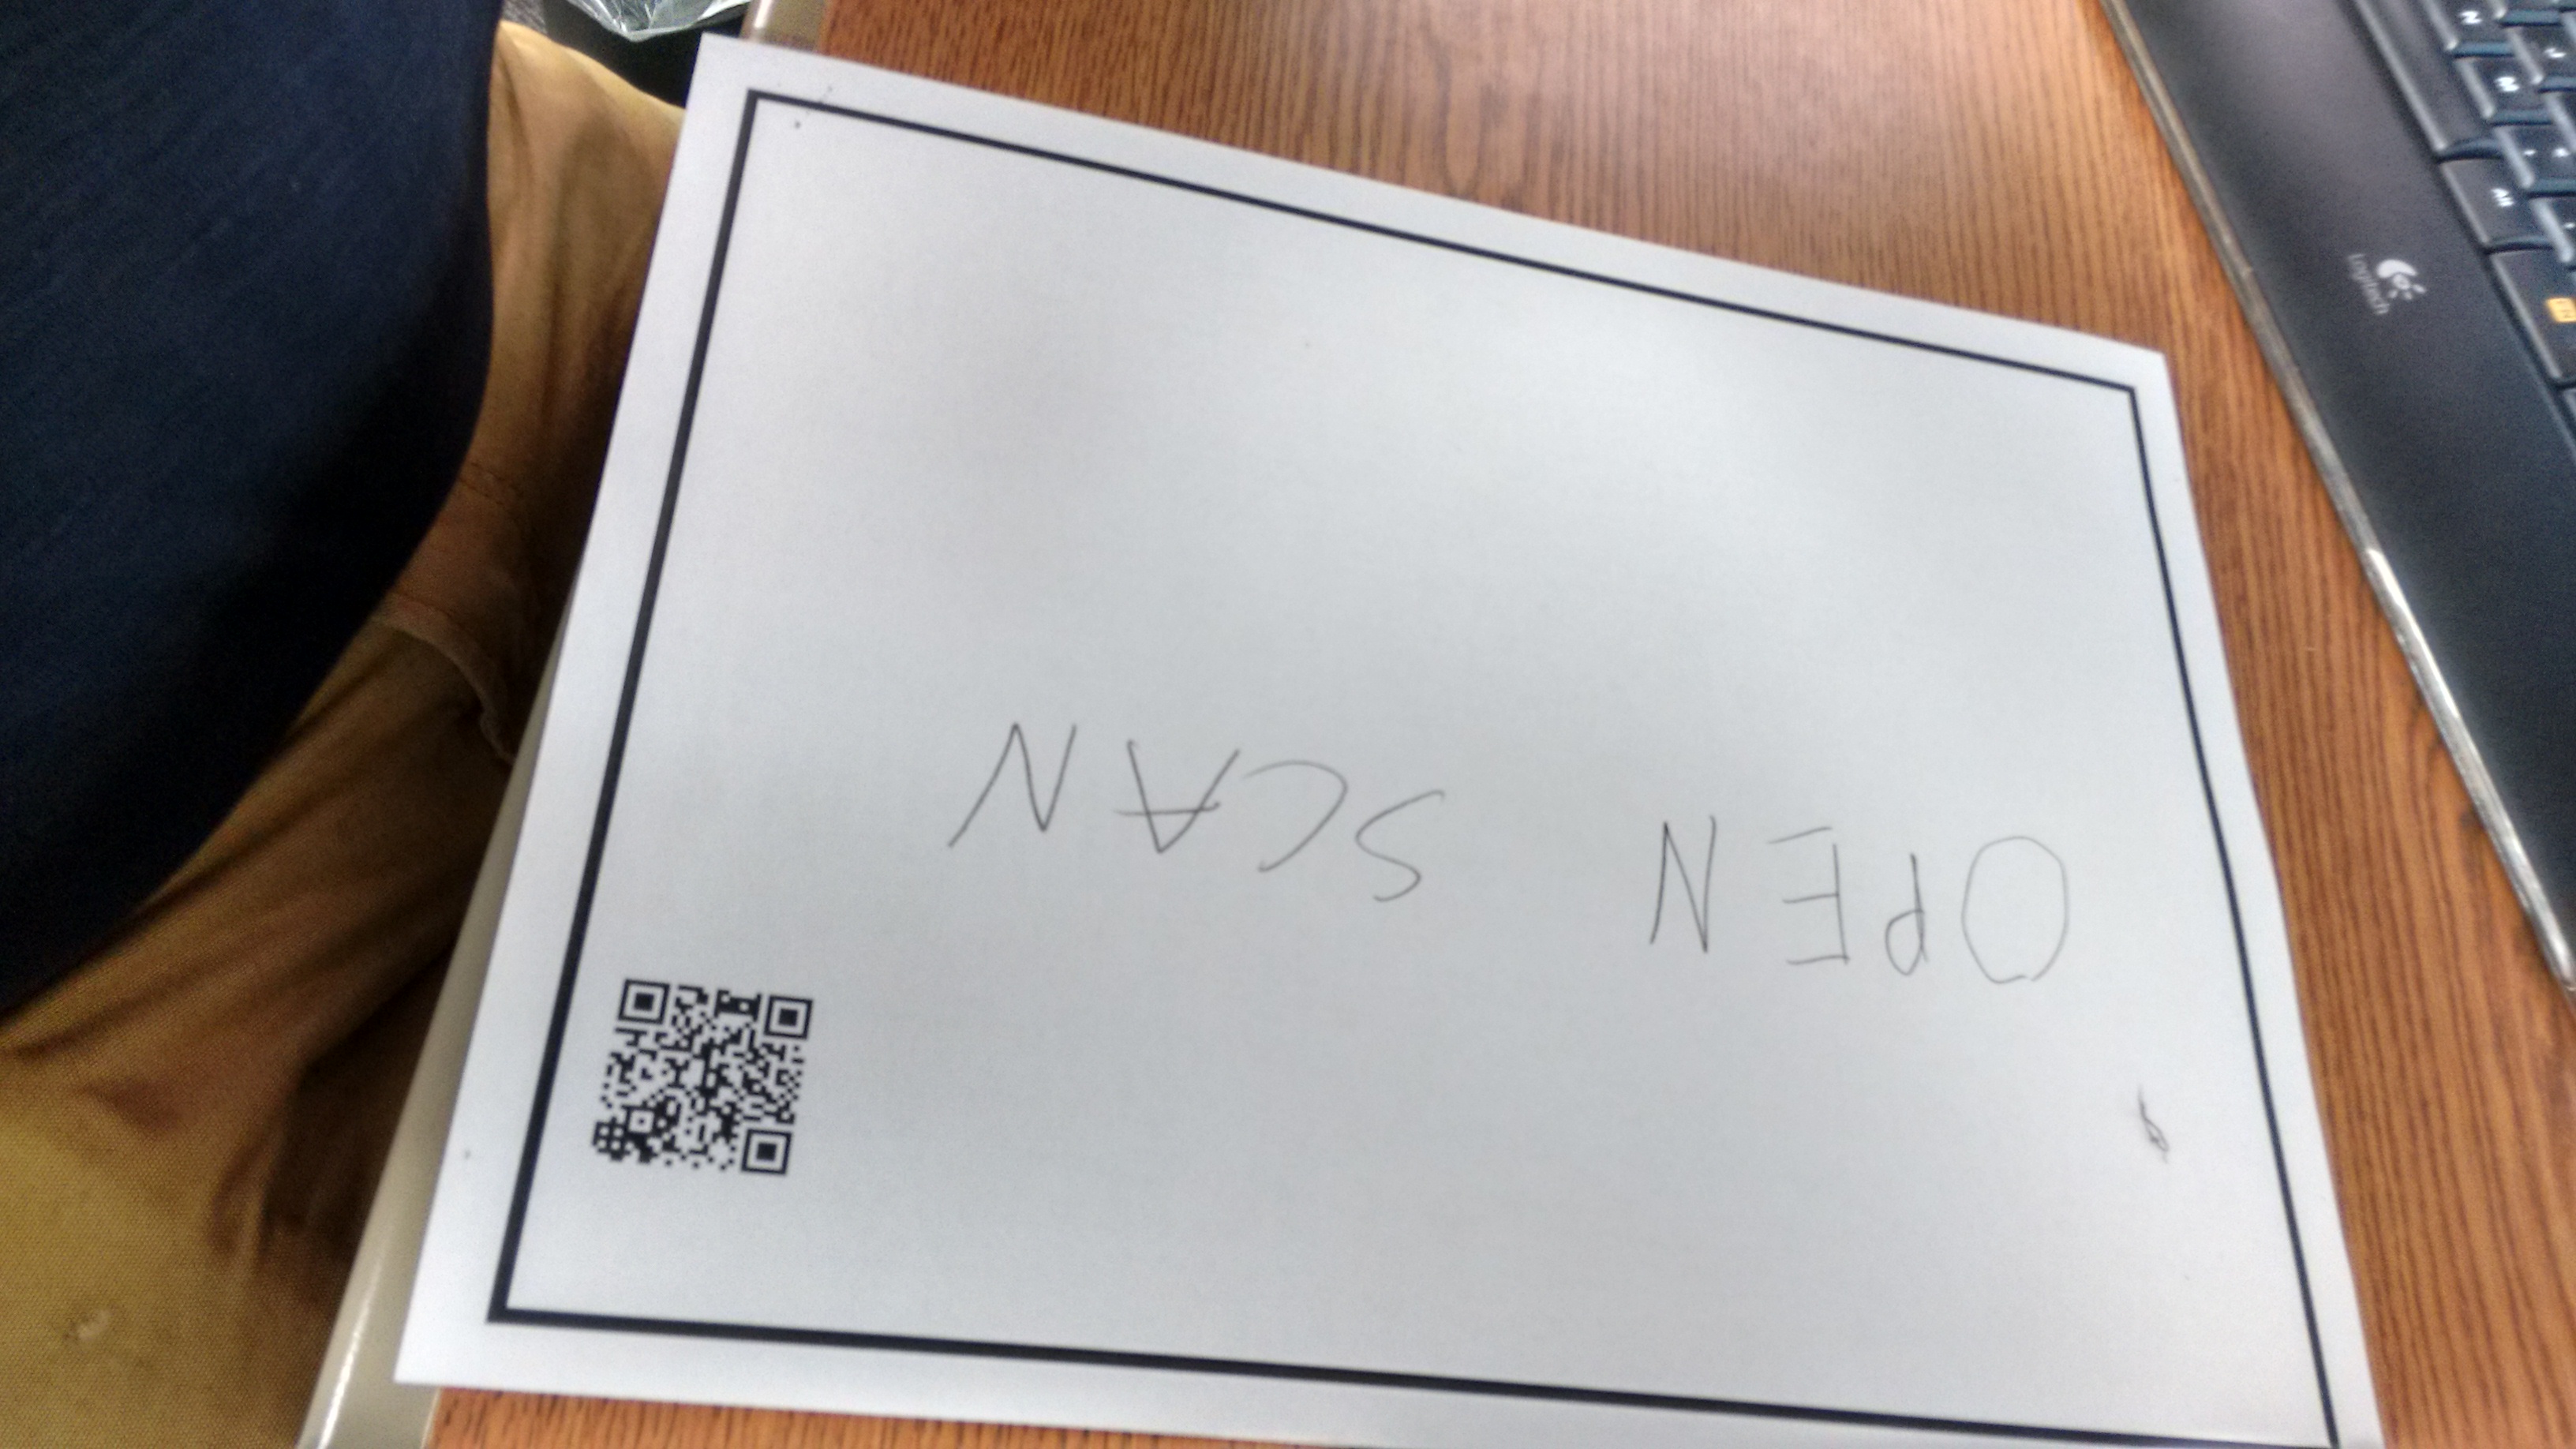 OPEN SCAN
Logitech